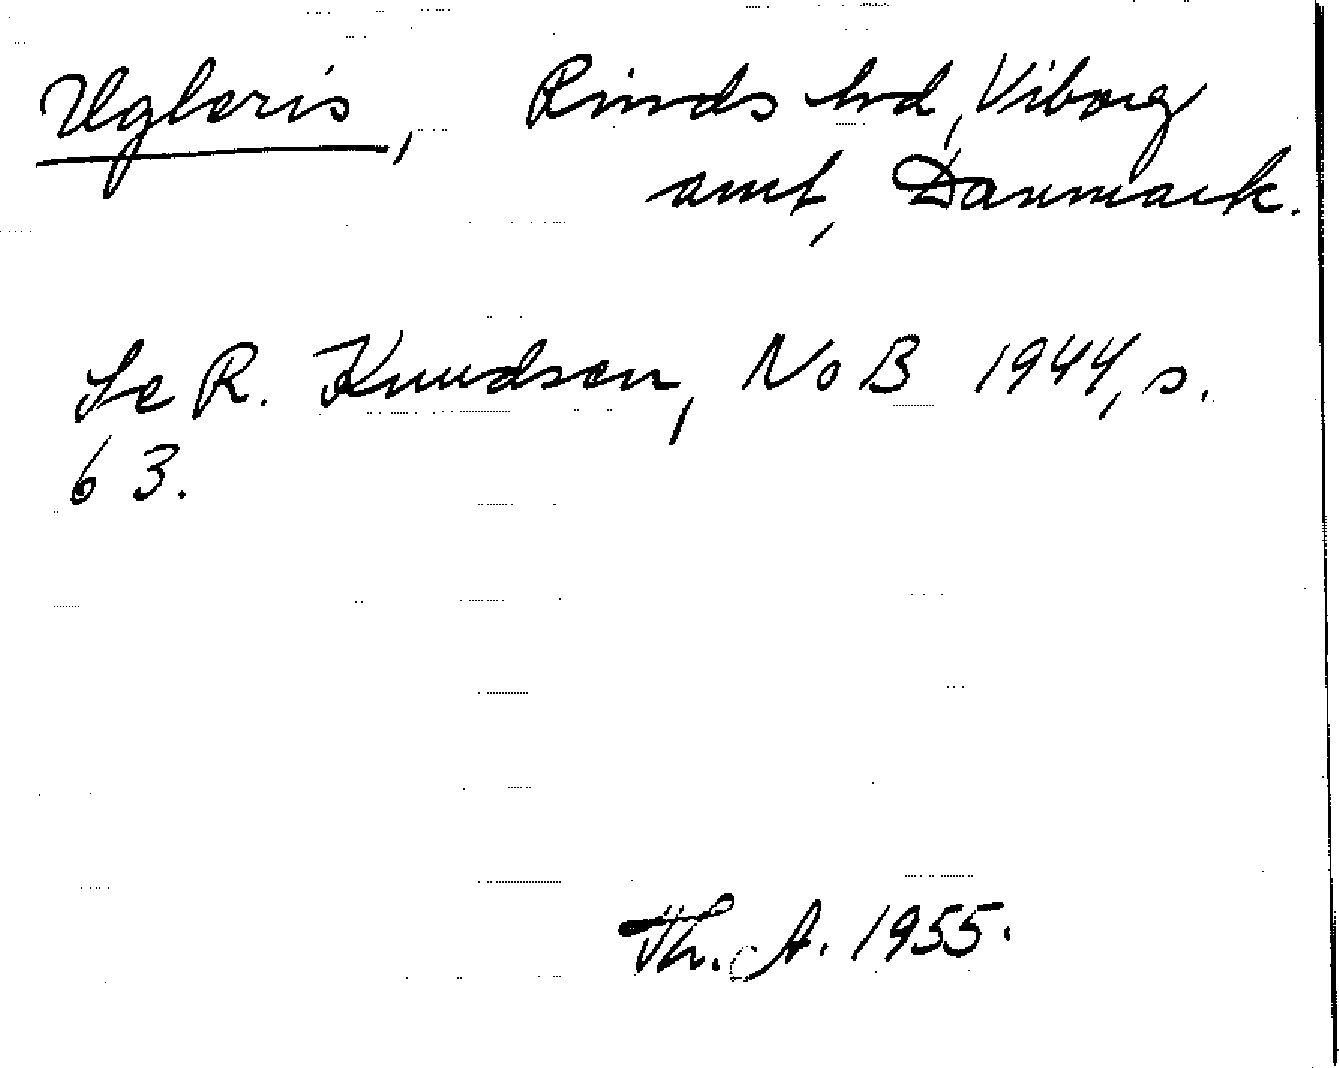 Ugleris, Rinds hd, Viborg
amt, Danmark.
Se R. Knudsen, NoB 1944, s.
63.
Th. A. 1955.